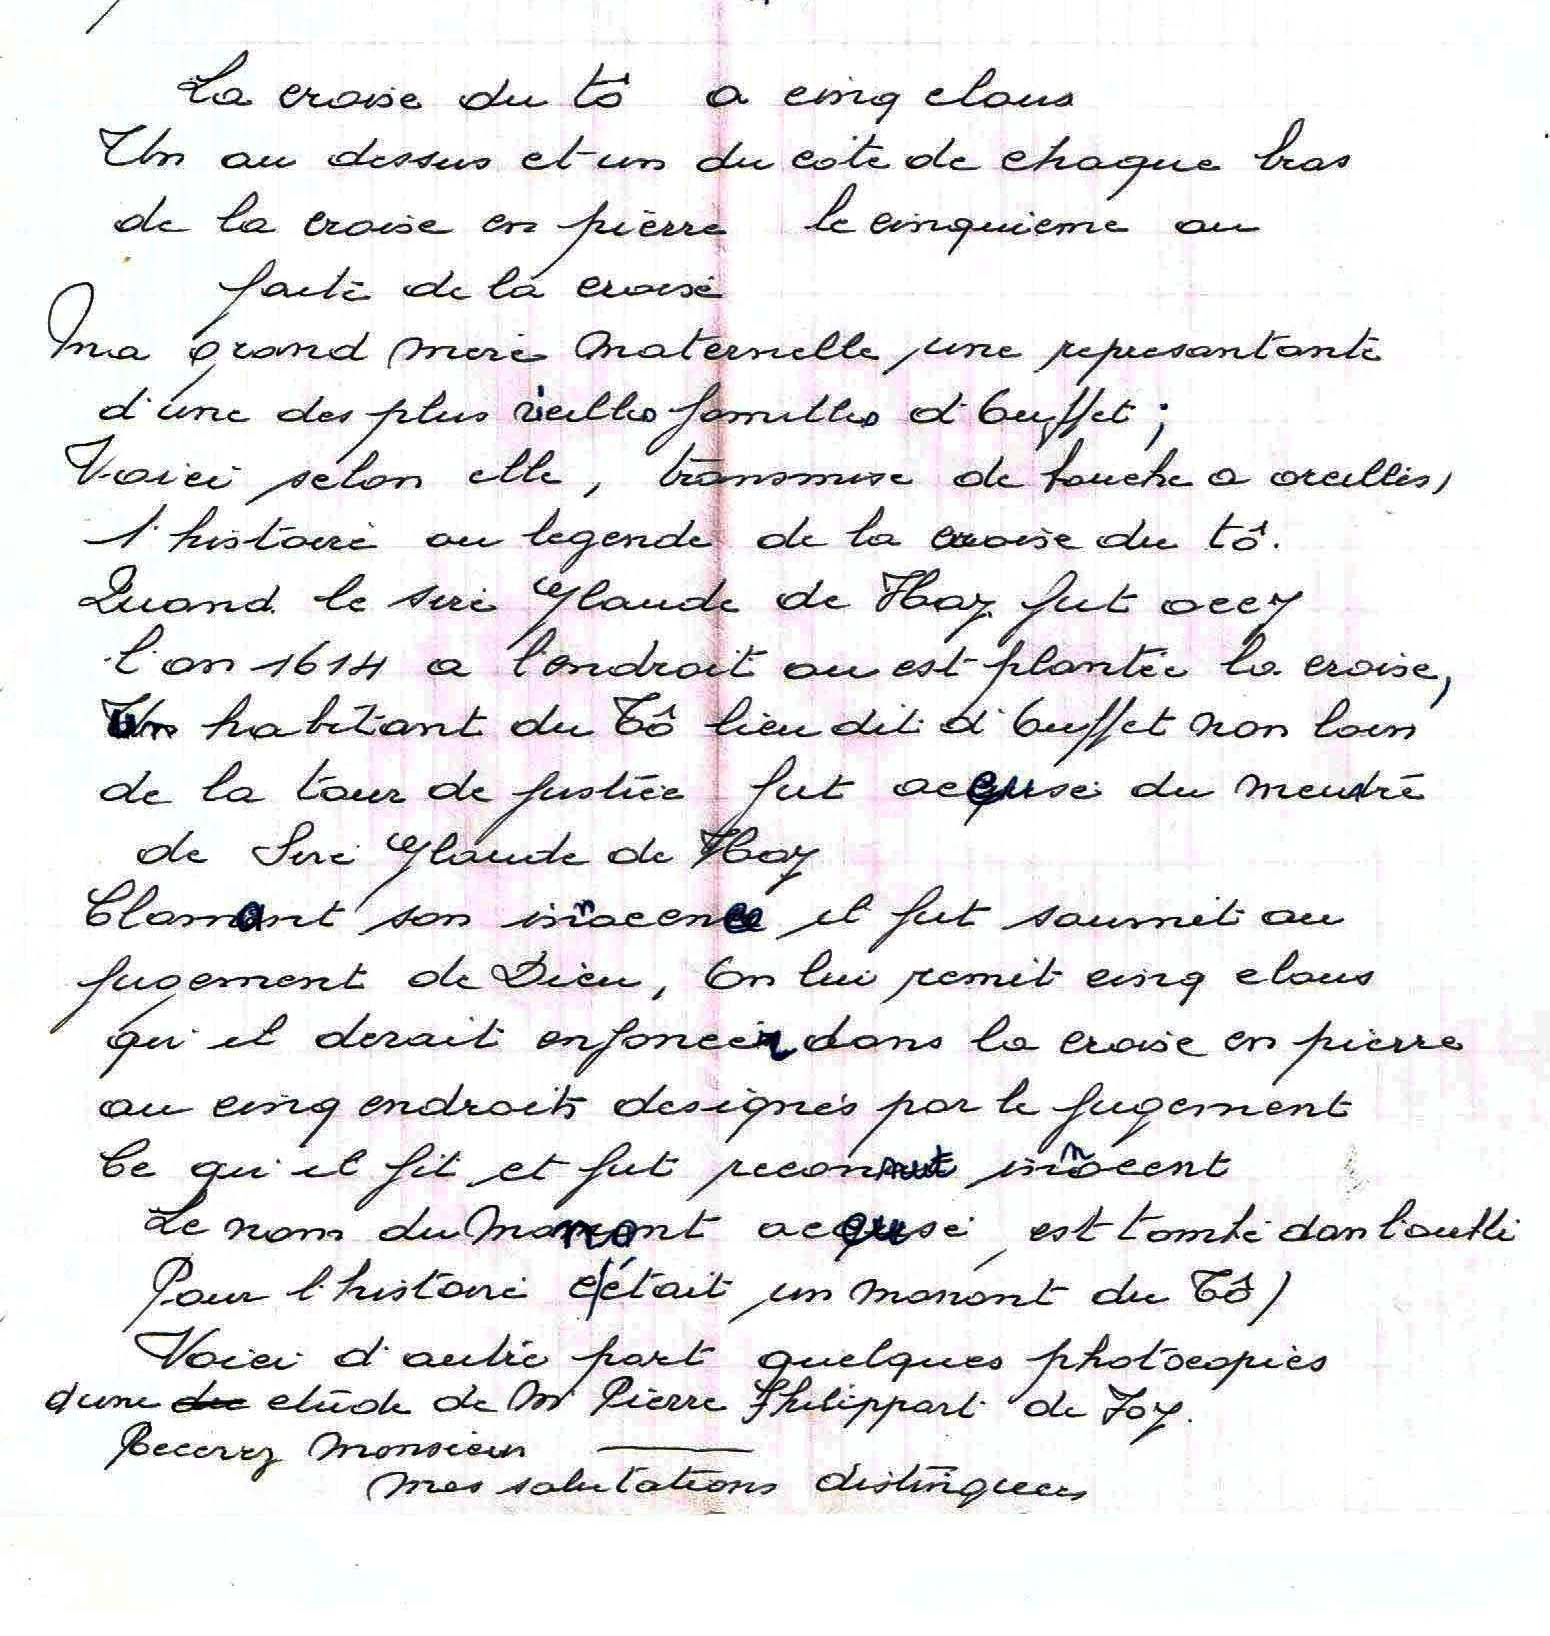 La croise du tô a cinq clous
Un au dessus et un du coté de chaque bras
de la croise en pierre le cinquieme au
faite de la croise
Ma grand mere maternelle, une represantante
d'une des plus vieilles familles d'Ouffet ;
Voici selon elle, transmise de bouche a oreilles,
l'histoire ou legende de la croise du tô.
Quand le sire Glaude de Hoy fut occy
l'an 1614 a l'endroit ou est plantée la croise,
Un habitant du Tô lieu dit d'Ouffet non loin
de la tour de justice fut accusé du meutre
de Sire Glaude de Hoy
Clamant son innocence il fut soumit au
jugement de Dieu, On lui remit cinq clous
qu'il devait enfoncer dans la croise en pierre
au cinq endroits designés par le jugement
Ce qu'il fit et fut reconnut innocent
Le nom du Manant accusé est tombé dan l'oubli
Pour l'histoire c'était un manant du Tô)
Voici d'autre part quelques photocopies
d'une etude de Mr Pierre Philippart de Foy.
Recevez Monsieur
mes salutations distinguees